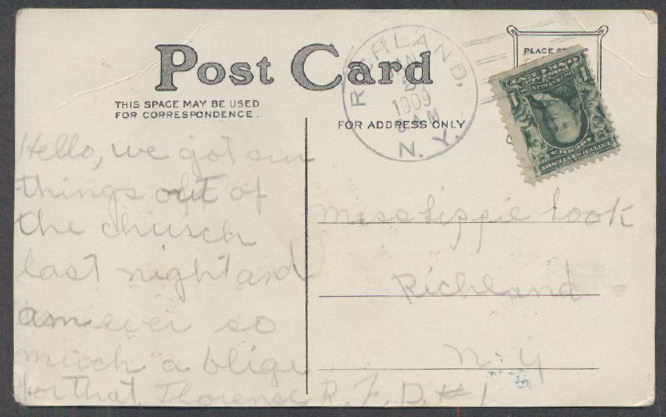 Post Card
THIS SPACE MAY BE USED
FOR CORRESPONDENCE.
FOR ADDRESS ONLY
PLACE
RICHLAND,
1909
N. Y.
Hello, we got our
things out of
the church
last night and
am ever so
much a blige
for that Florence R.F.D. #1
Miss Lippie Look
Richland
N. Y